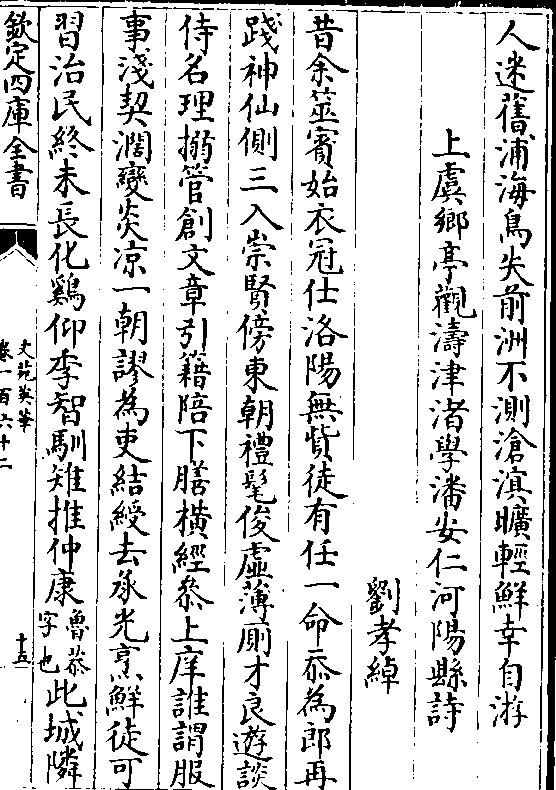 人迷舊浦海鳥失前洲不測滄溟曠輕鮮幸自游
上虞鄉亭觀濤津渚學潘安仁河陽縣詩
劉孝綽
昔余筮賓始衣冠仕洛陽無貲徒有任一命忝為郎再
踐神仙側三入崇賢傍東朝禮髦俊虛薄厠才良遊談
侍名理搦管創文章引籍陪下膳橫經參上庠誰謂服
事淺契濶變炎凉一朝謬為吏結綬去承光烹鮮徒可
習治民終未長化鷄仰季智馴雉推仲康魯恭字也此城隣
欽定四庫全書
文苑英華
卷一百六十二
十五